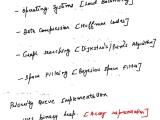 - Operating Systems [Load Balancing]
- Data Compression [Huffman codes]
- Graph searching [Dijkstra's/Prim's Algorithm]
- Spam Filtering [Bayesian Spam Filter]
Priority Queue Implementation
binary heap. [Array implementation]